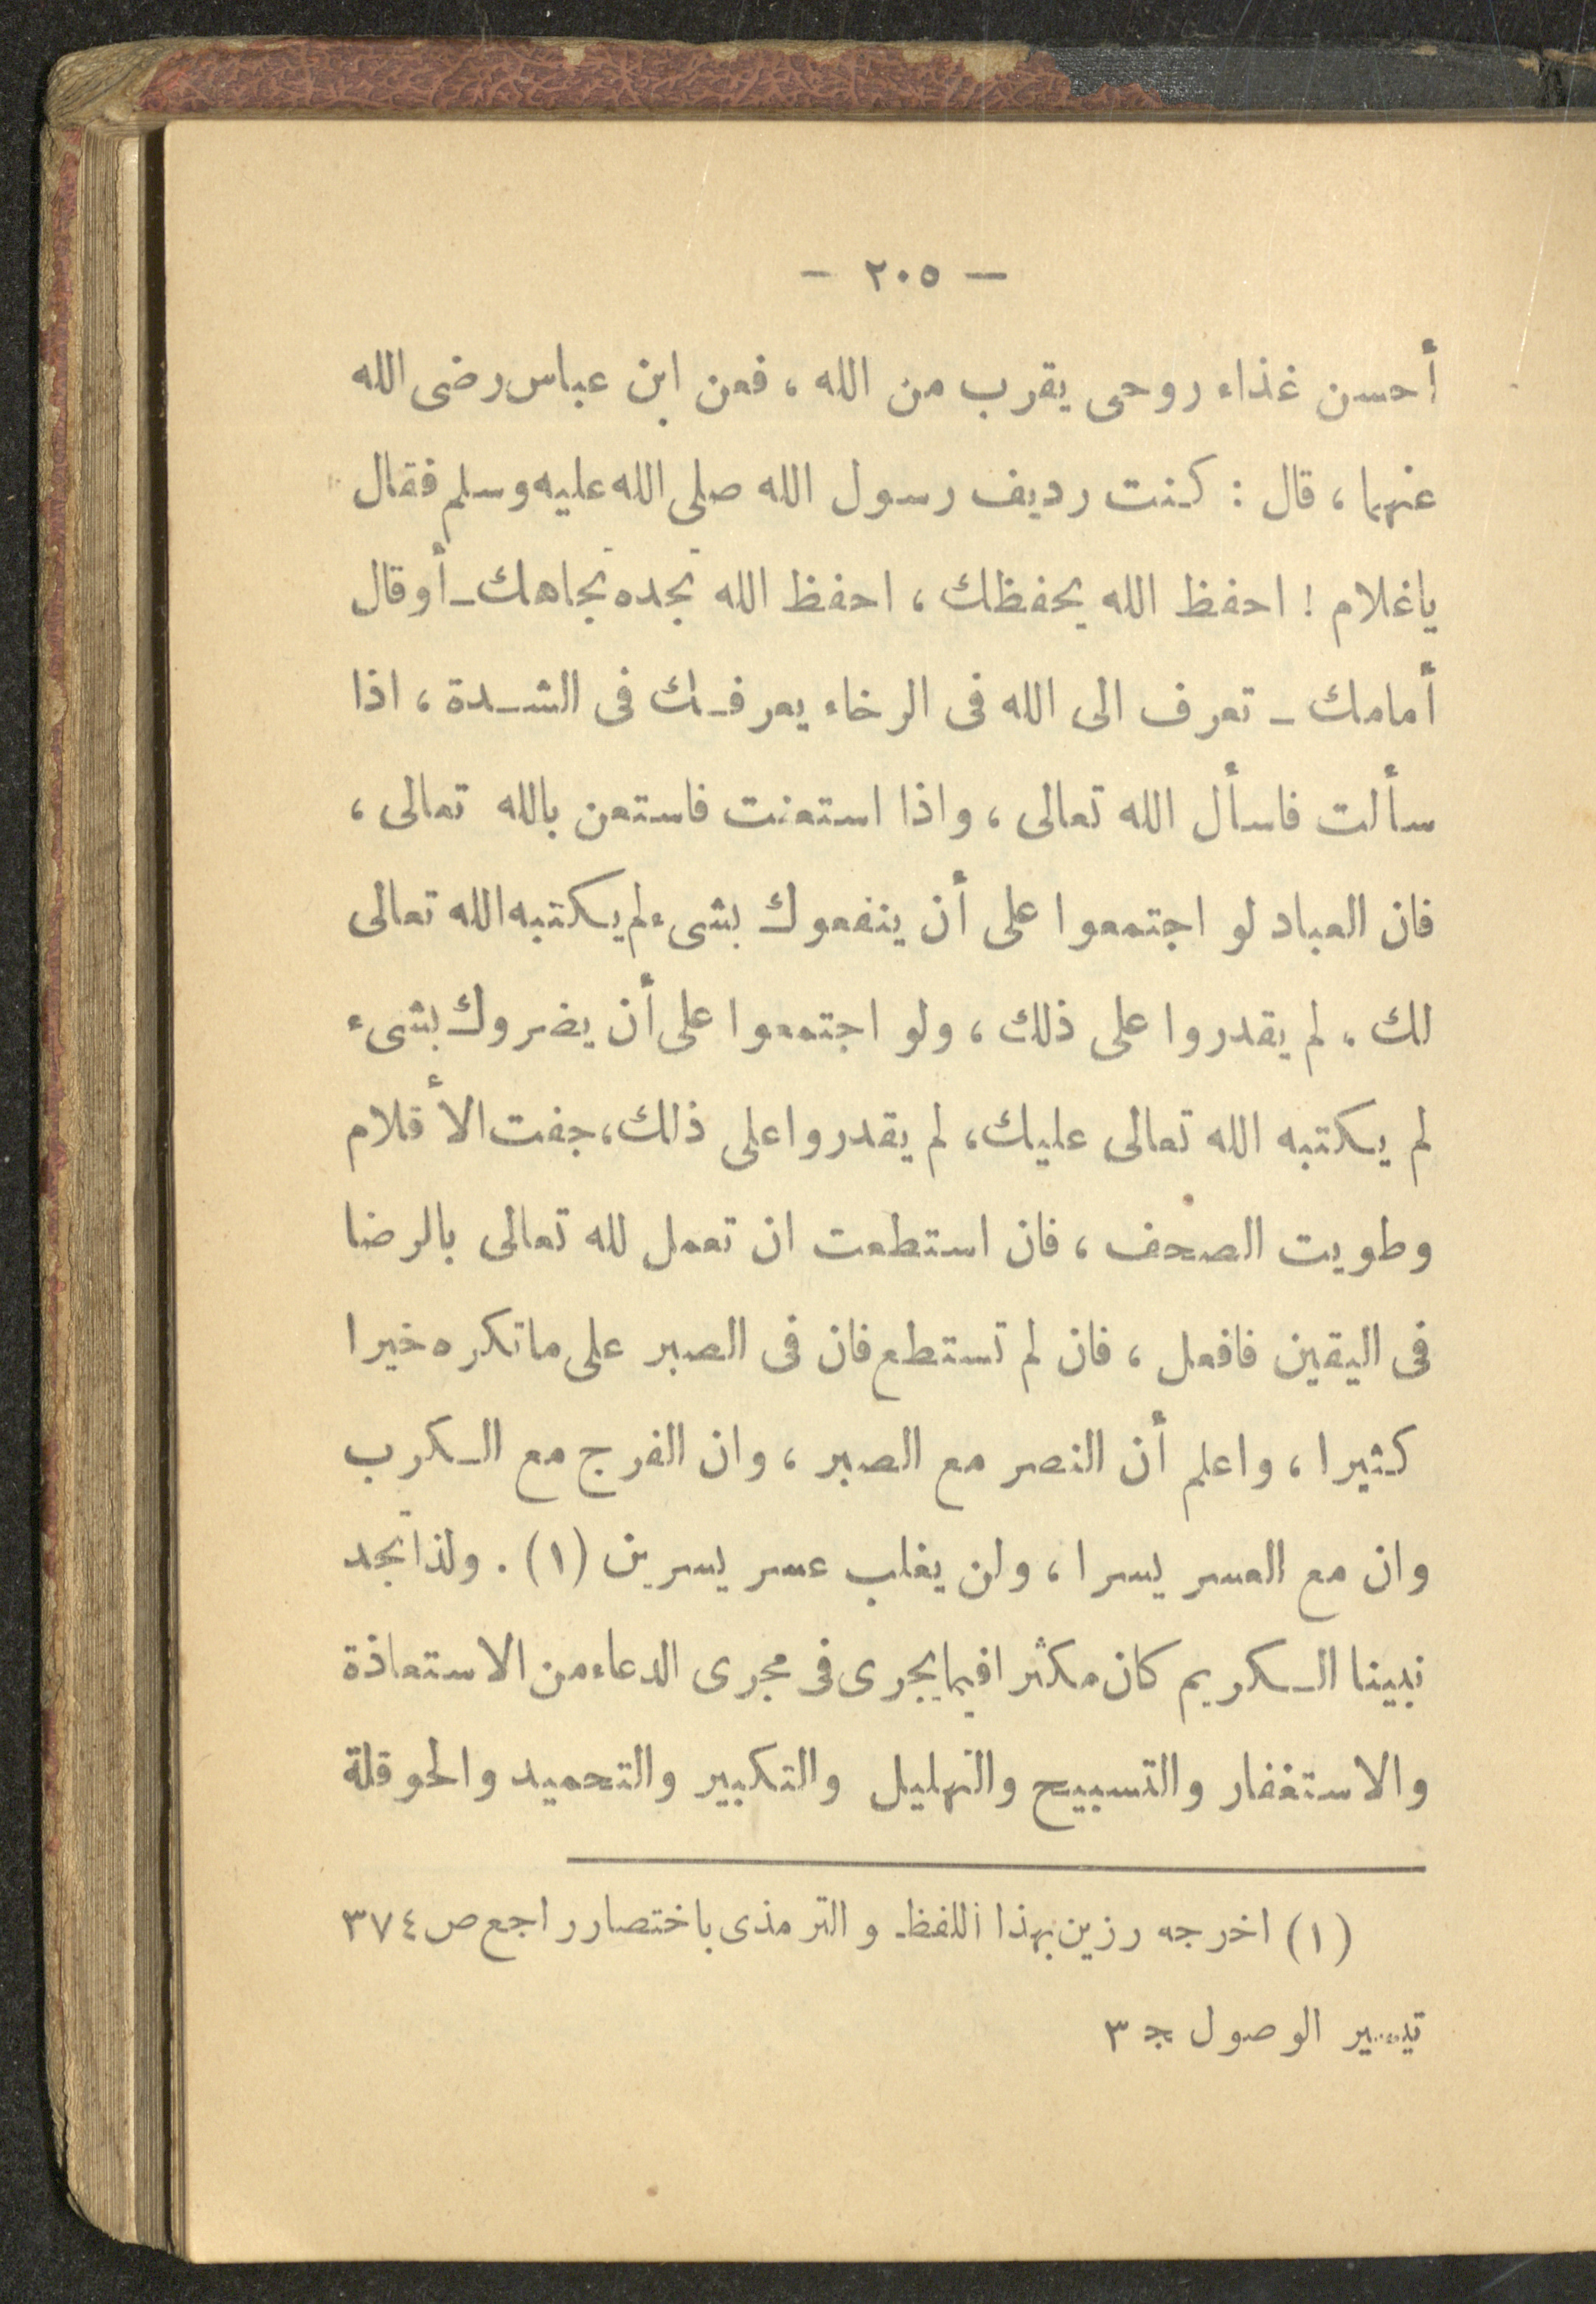 — ٢٠٥ —
أحسن غذاء روحى يقرب من الله ، فعن ابن عباس رضى الله
عنهما ، قال : كنت رديف رسول الله صلى الله عليه وسلم فقال
ياغلام ! احفظ الله يحفظك ، احفظ الله تجده تجاهك ـ أو قال
أمامك ـ تعرف الى الله فى الرخاء يعرفـك فى الشـدة ، اذا
سألت فاسأل الله تعالى ، واذا استعنت فاستعن بالله تعالى ،
فان العباد لو اجتمعوا على أن ينفعوك بشىء لم يكتبه الله تعالى
لك ، لم يقدروا على ذلك ، ولو اجتمعوا على أن يضروك بشىء
لم يكتبه الله تعالى عليك ، لم يقدروا على ذلك ، جفت الأقلام
وطويت الصحف ، فان استطعت ان تعمل لله تعالى بالرضا
فى اليقين فافعل ، فان لم تستطع فان فى الصبر على ماتكره خيرا
كثيرا ، واعلم أن النصر مع الصبر ، وان الفرج مع الـكرب
وان مع العسر يسرا ، ولن يغلب عسر يسرين (١) . ولذا تجد
نبينا الـكريم كان مكثرا فيما يجرى فى مجرى الدعاء من الاستعاذة
والاستغفار والتسبيح والتهليل والتكبير والتحميد والحوقلة
(١) اخرجه رزين بهذا اللفظ والترمذى باختصار راجع ص ٣٧٤
تيسير الوصول جـ ٣